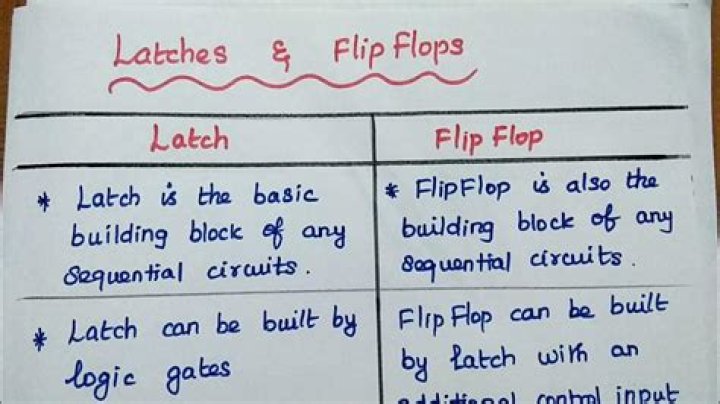 Latches & Flip Flops
Latch
Flip Flop
* Latch is the basic
building block of any
Sequential circuits.
* FlipFlop is also the
building block of any
Sequential circuits.
* Latch can be built by
logic gates
Flip Flop can be built
by latch with an
additional control input